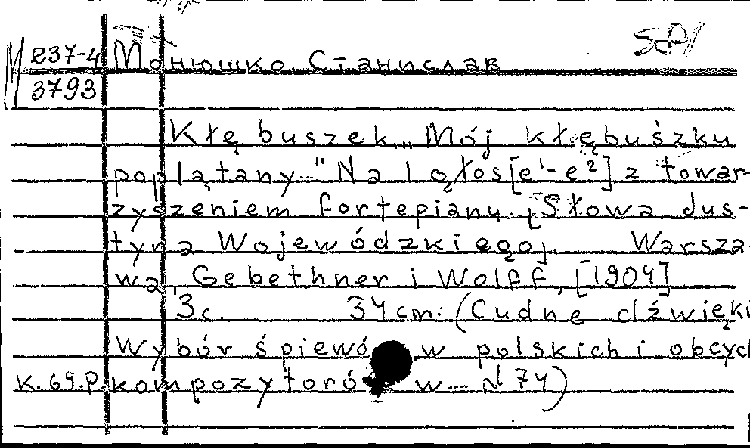 М 237-4 Монюшко Станислав
3793
Kłębuszek „Mój kłębuszku
poplątany." Na 1 głos [e¹-e²] z towar-
zyszeniem fortepianu. [Słowa Jus-
tyna Wojewódzkiego]. Warsza-
wa, Gebethner i Wolff, [1904]
3с. 34 cm. (Cudne dźwięki
Wybór śpiewów polskich i obcych
К.69.Р. kompozytorów № 74)